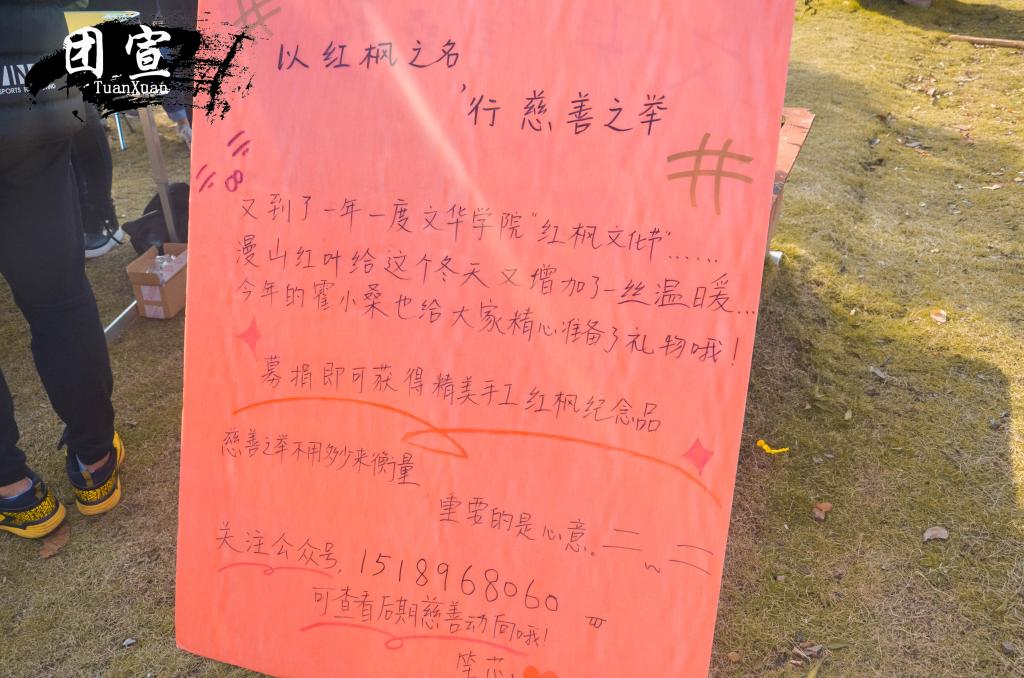 团宣
TuanXuan
以红枫之名
，行慈善之举
又到了一年一度文华学院“红枫文化节”……
漫山红叶给这个冬天又增加了一丝温暖…
今年的霍小桑也给大家精心准备了礼物哦！
募捐即可获得精美手工红枫纪念品
慈善之举不用多少来衡量
重要的是心意。
关注公众号，1518968060
可查看后期慈善动向哦！
笔芯